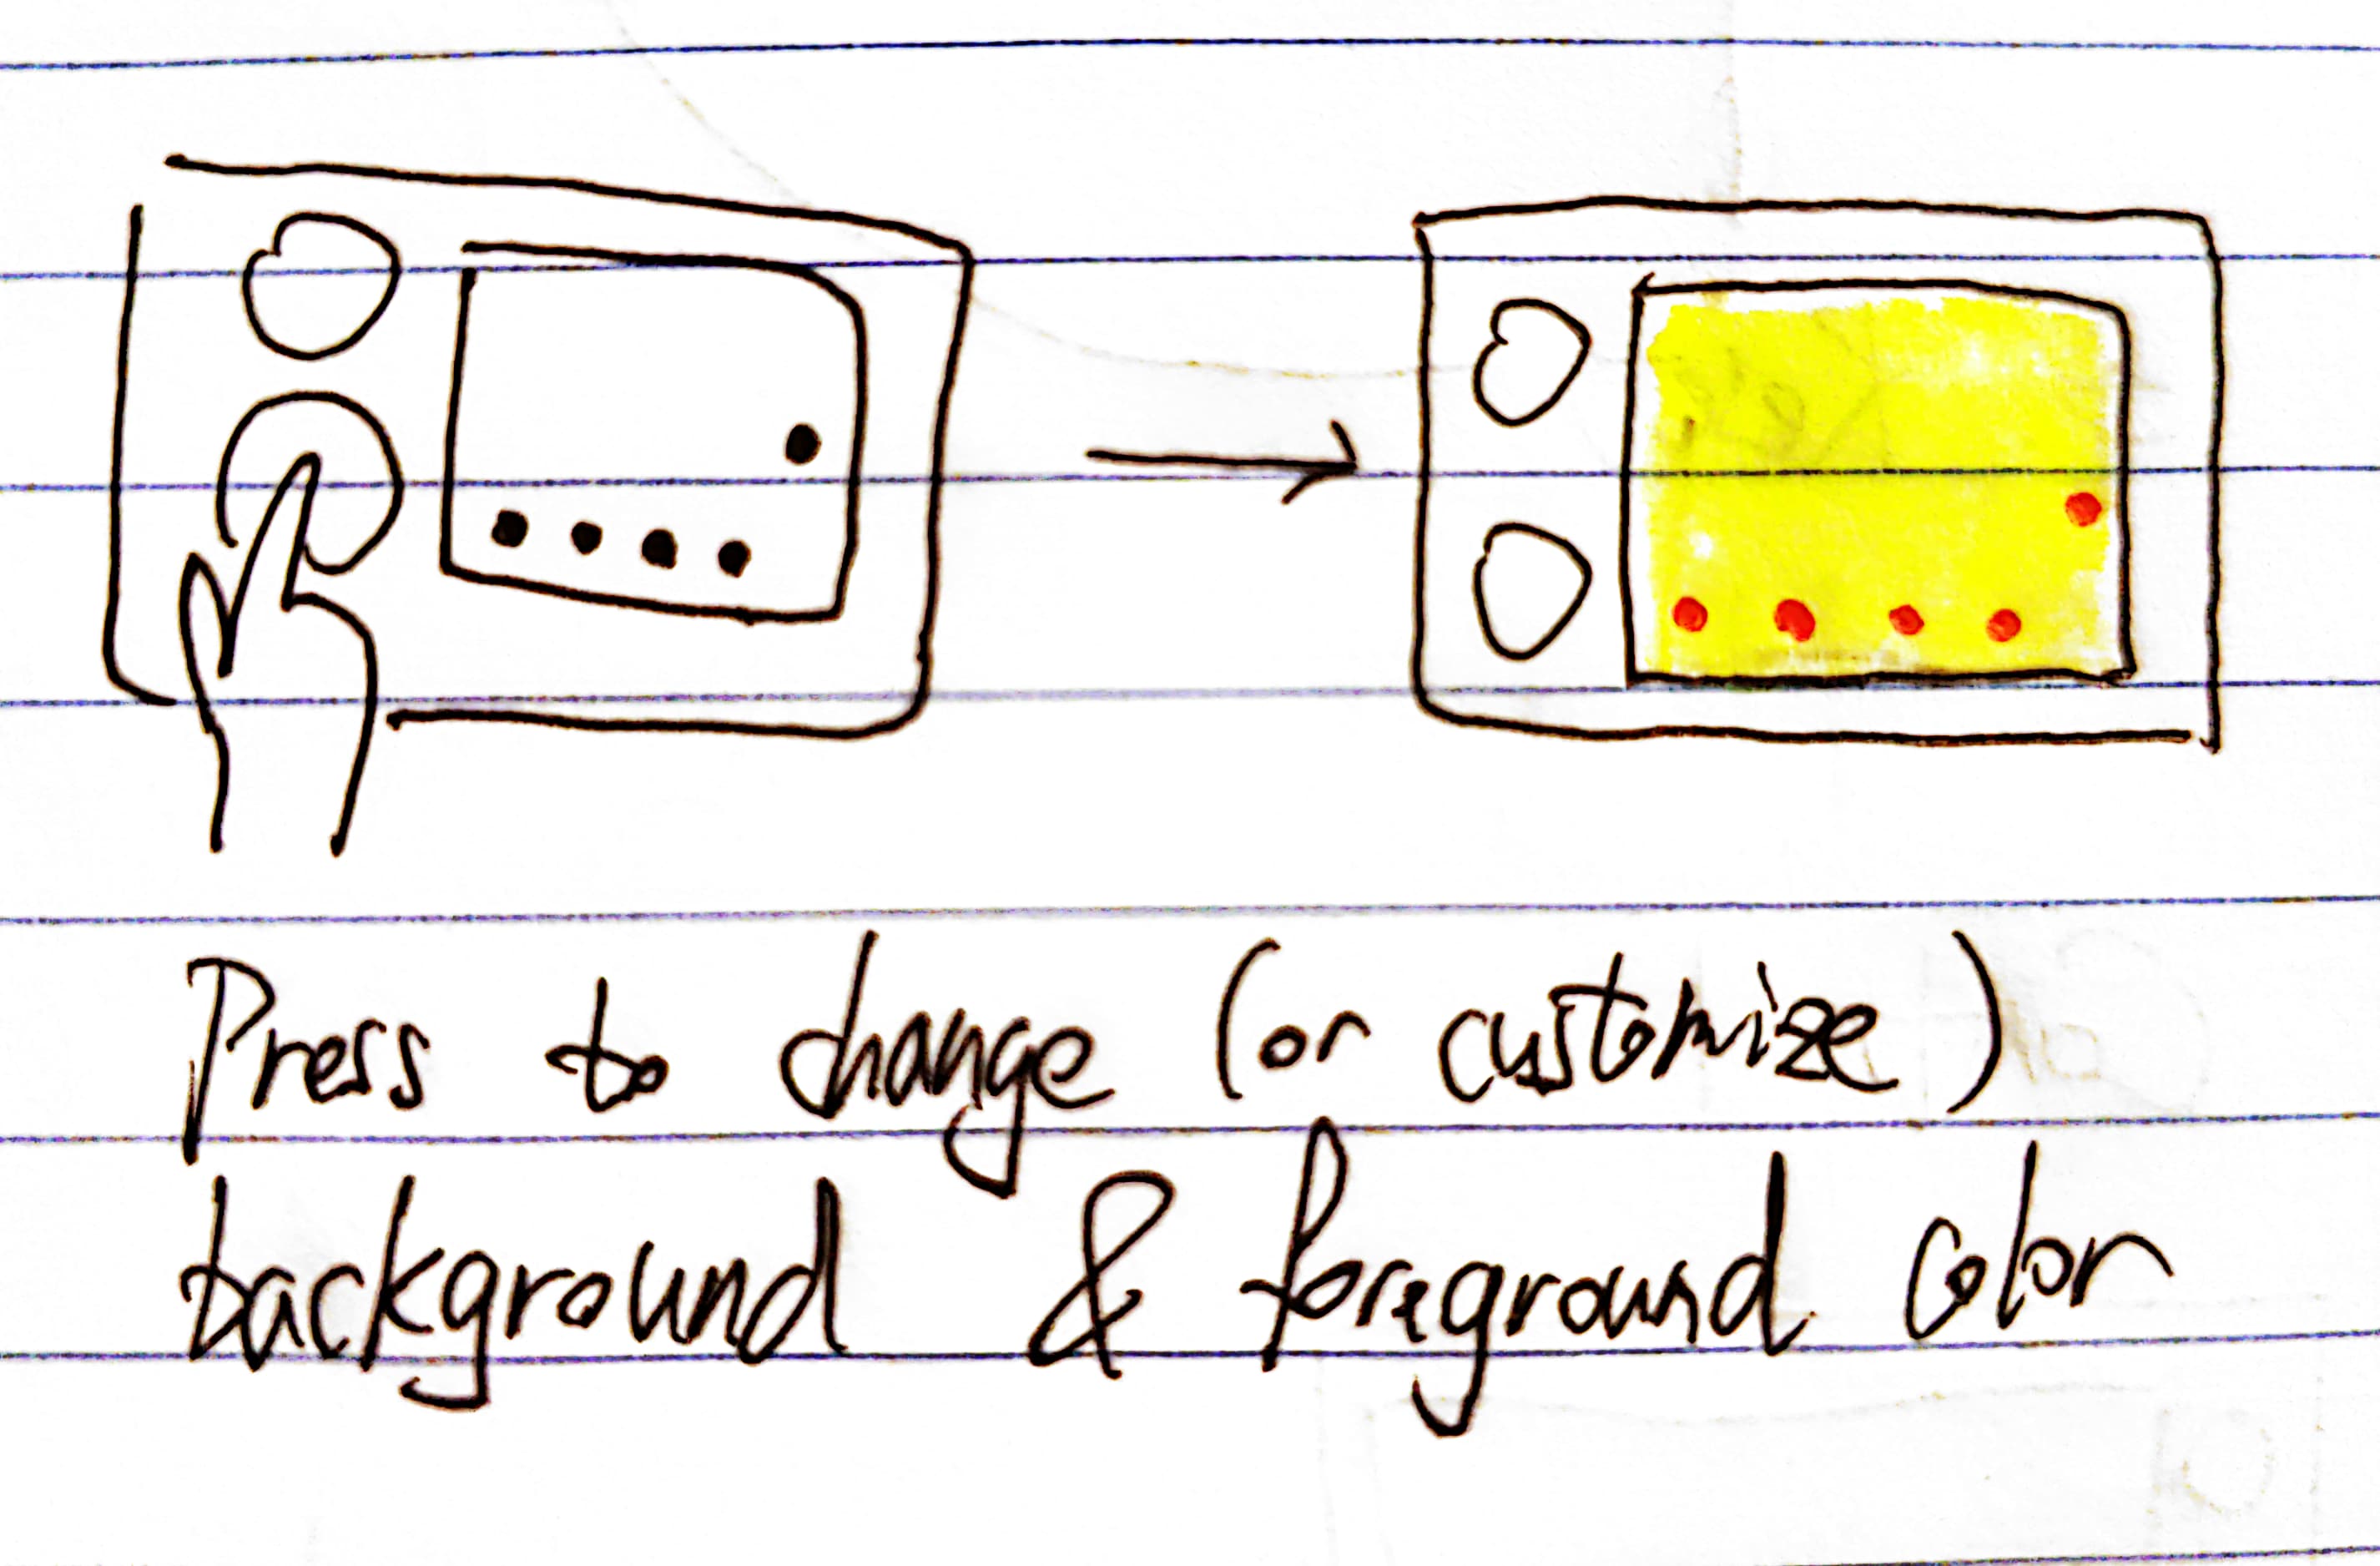 Press to change (or customize)
background & foreground color